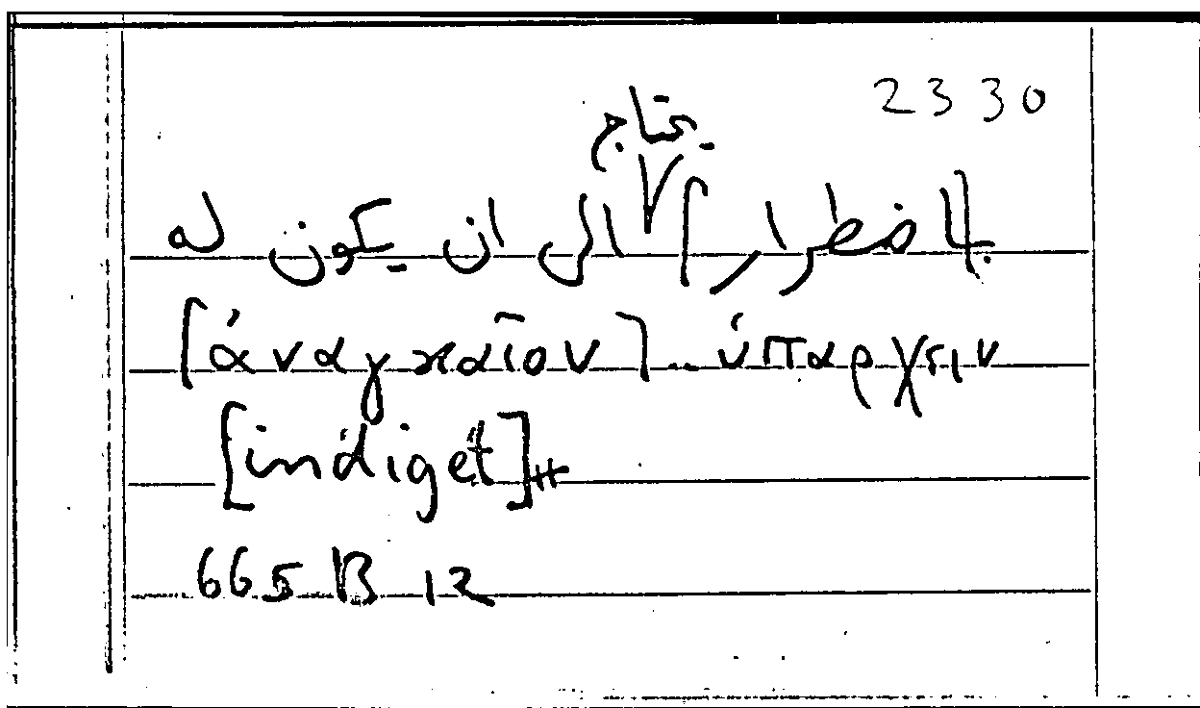 2330
يحتاج
باضطرار[ الى ان يكون له
[ἀναγκαῖον] .. ὑπάρχειν
[indiget]++
665 B 12